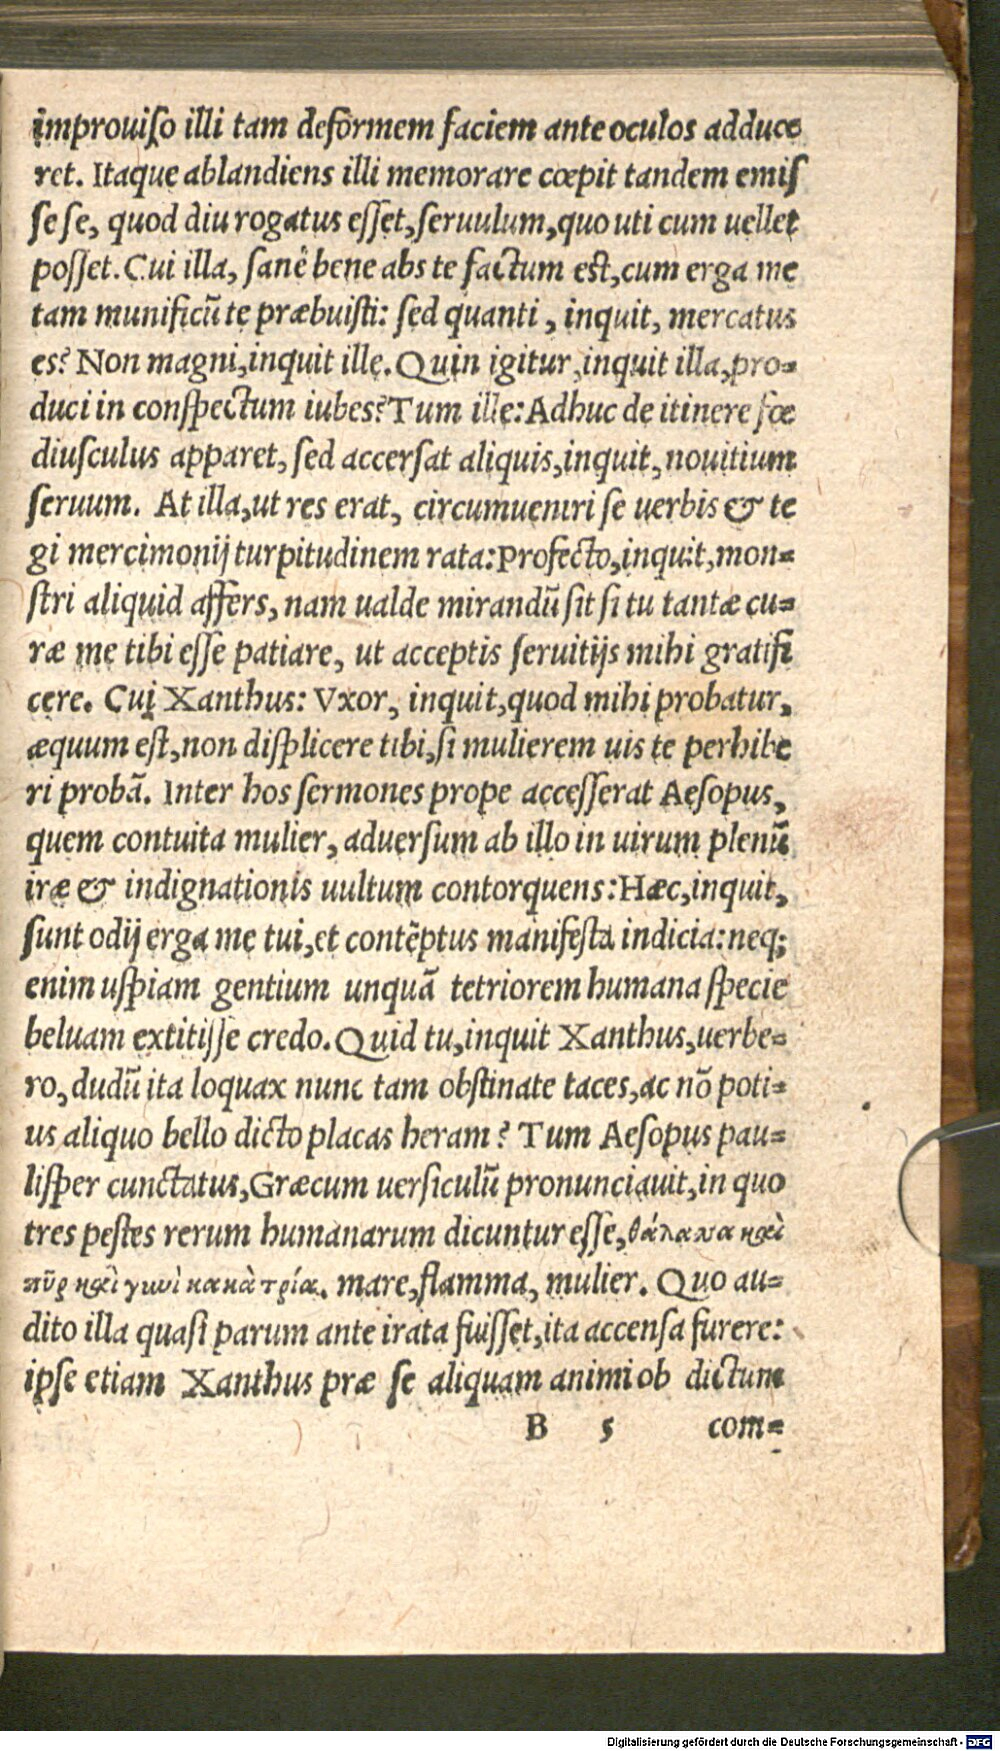 improuiſo illi tam deformem faciem ante oculos adduce
ret. Itaque ablandiens illi memorare cœpit tandem emiſ
ſe ſe, quod diu rogatus eſſet, ſeruulum, quo uti cum uellet
poſſet. Cui illa, ſanè bene abs te factum eſt, cum erga me
tam munificũ te præbuiſti: ſed quanti, inquit, mercatus
es? Non magni, inquit ille. Quin igitur, inquit illa, pro-
duci in conſpectum iubes? Tum ille: Adhuc de itinere fœ
diuſculus apparet, ſed accerſat aliquis, inquit, nouitium
ſeruum. At illa, ut res erat, circumueniri ſe uerbis & te
gi mercimonij turpitudinem rata: Profecto, inquit, mon-
ſtri aliquid affers, nam ualde mirandũ ſit ſi tu tantæ cu-
ræ me tibi eſſe patiare, ut acceptis ſeruitijs mihi gratifi
cere. Cui Xanthus: Vxor, inquit, quod mihi probatur,
æquum eſt, non diſplicere tibi, ſi mulierem uis te perhibe
ri probã. Inter hos ſermones prope acceſſerat Aeſopus,
quem contuita mulier, aduerſum ab illo in uirum plenũ
iræ & indignationis uultum contorquens: Hæc, inquit,
ſunt odij erga me tui, et contẽptus manifeſta indicia: neq;
enim uſpiam gentium unquã tetriorem humana ſpecie
beluam extitiſſe credo. Quid tu, inquit Xanthus, uerbe-
ro, dudũ ita loquax nunc tam obſtinate taces, ac nõ poti-
us aliquo bello dicto placas heram? Tum Aeſopus pau-
liſper cunctatus, Græcum uerſiculũ pronunciauit, in quo
tres peſtes rerum humanarum dicuntur eſſe, θάλασσα καὶ
πῦρ καὶ γυνὴ κακὰ τρία. mare, flamma, mulier. Quo au-
dito illa quaſi parum ante irata fuiſſet, ita accenſa furere:
ipſe etiam Xanthus præ ſe aliquam animi ob dictum
B 5 com-
Digitalisierung gefördert durch die Deutsche Forschungsgemeinschaft - DFG